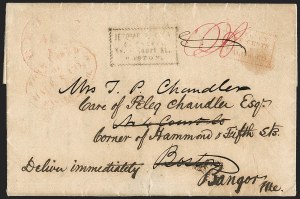 BOSTON.
Mrs T. P. Chandler
Care of Peleg Chandler Esqr.
No 4 Court St
Corner of Hammond & Fifth Sts.
Deliver immediately Boston
Bangor
Me.